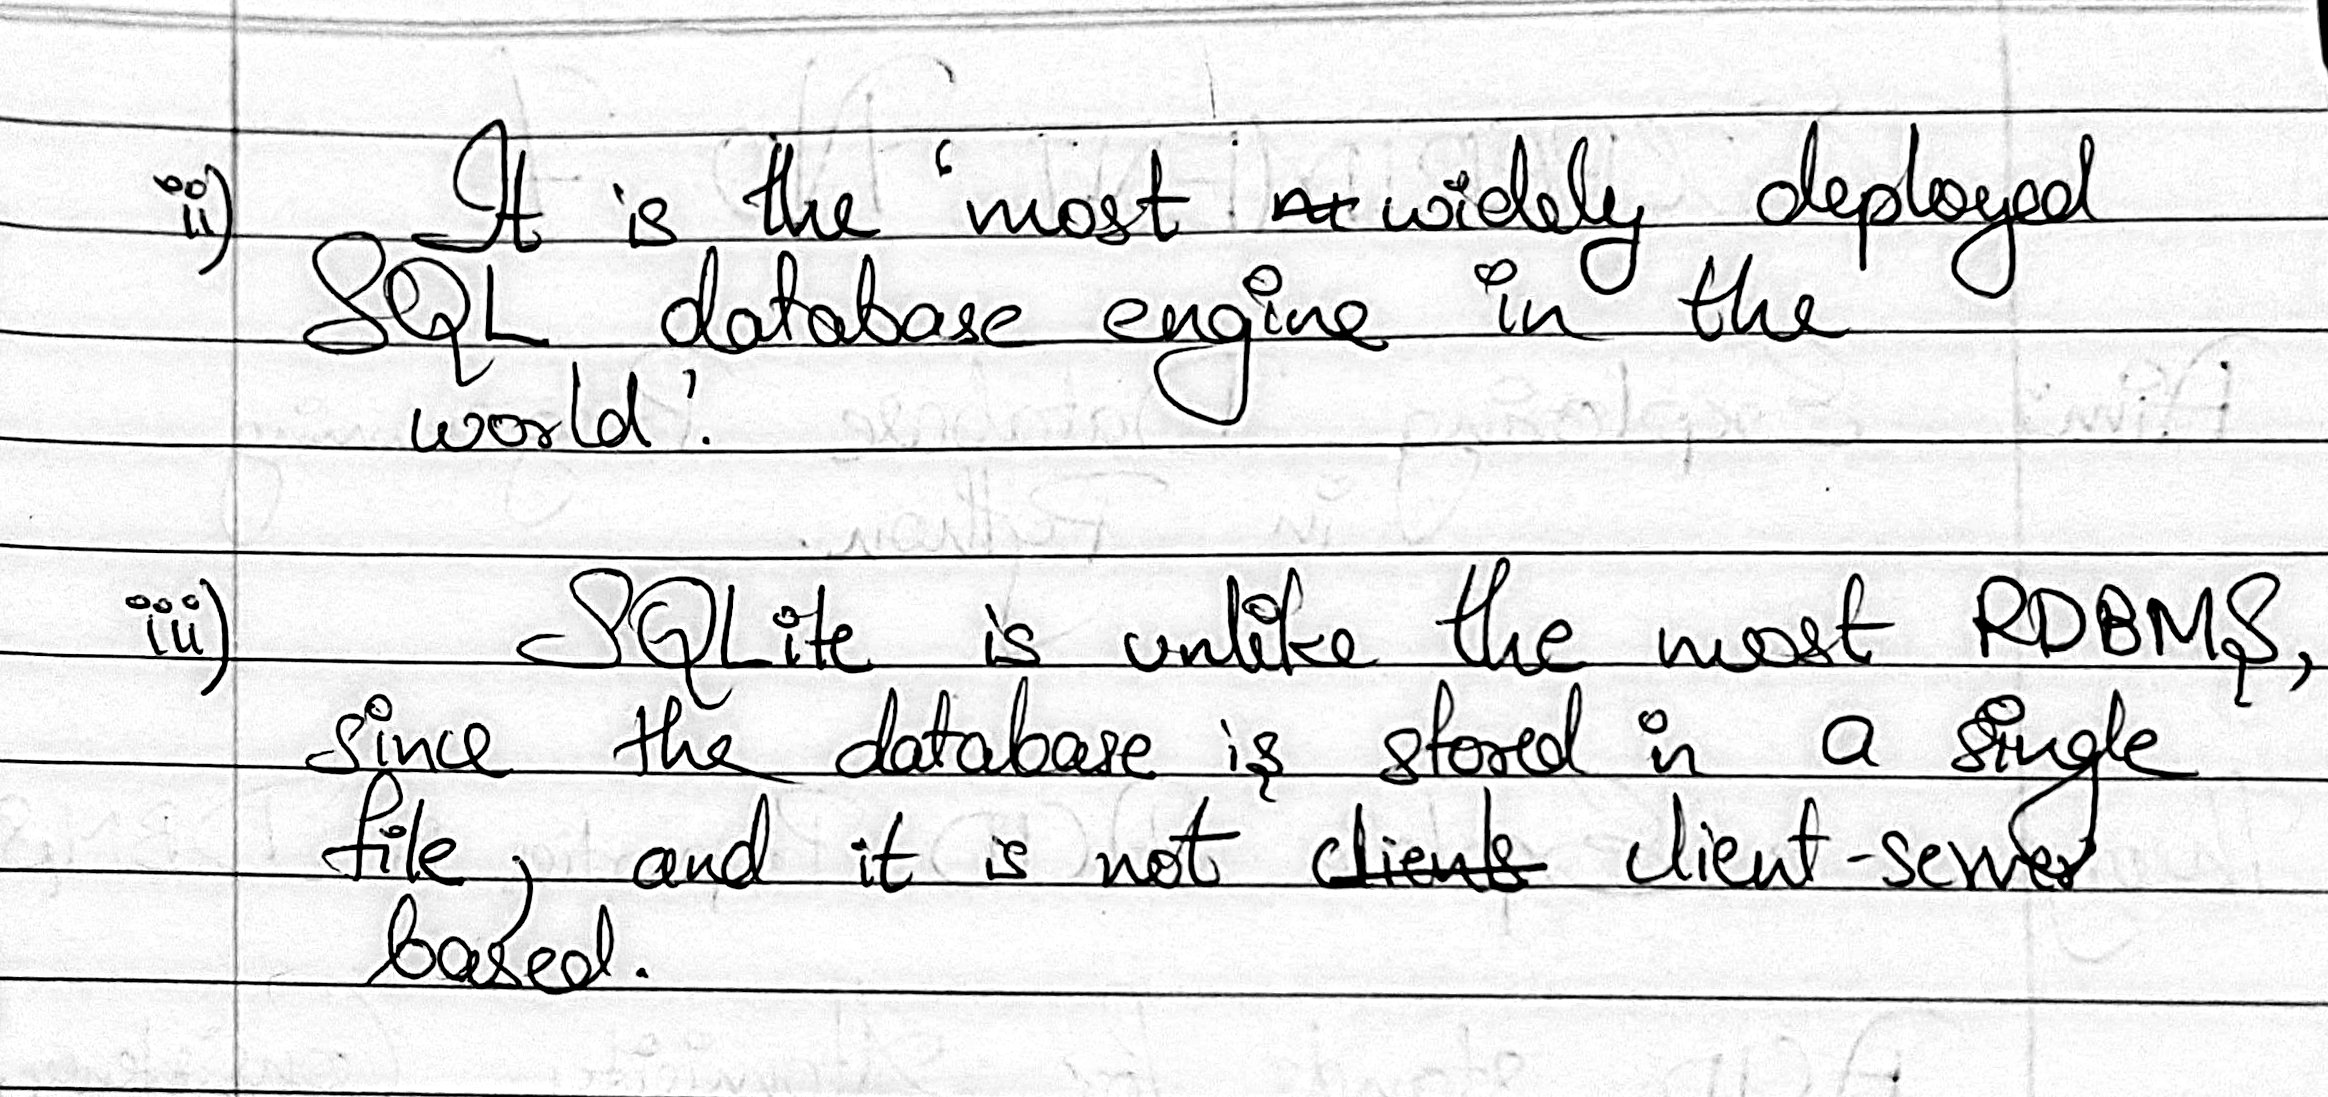 ii) It is the 'most widely deployed
SQL database engine in the
world'.
iii) SQLite is unlike the most RDBMS,
since the database is stored in a single
file, and it is not clients client-server
based.